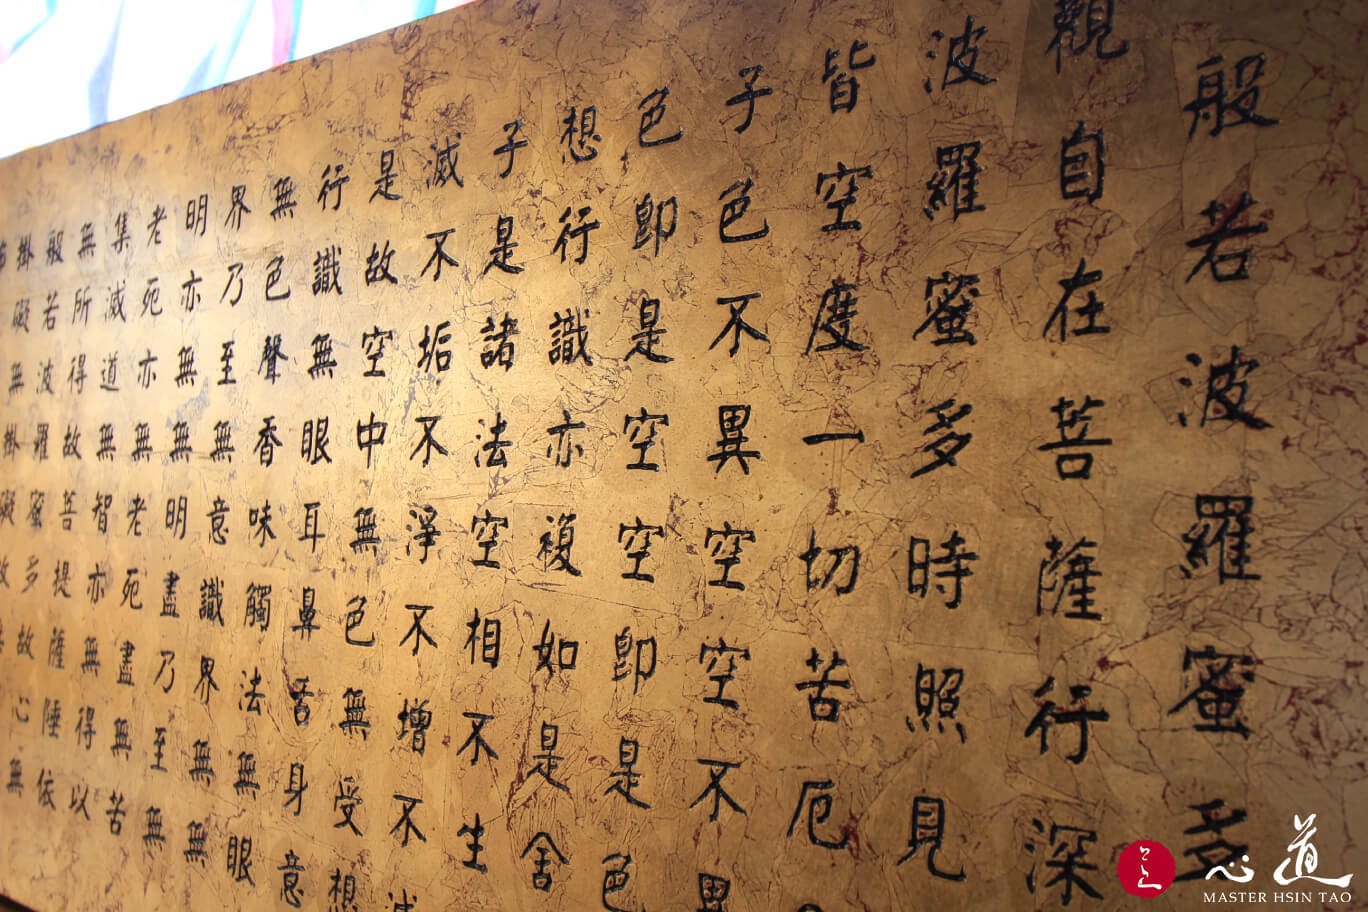 般若波羅蜜多
觀自在菩薩行深
波羅蜜多時照見
皆空度一切苦厄
子色不異空空不異
色即是空空即是色
想行識亦複如是舍
子是諸法空相不生
滅不垢不淨不增不
是故空中無色無受想
行識無眼耳鼻舌身意
無色聲香味觸法無眼
界乃至無意識界無無
明亦無無明盡乃至無
老死亦無老死盡無苦
集滅道無智亦無得以
無所得故菩提薩埵依
般若波羅蜜多故心無
掛礙無掛礙故
心道
MASTER HSIN TAO